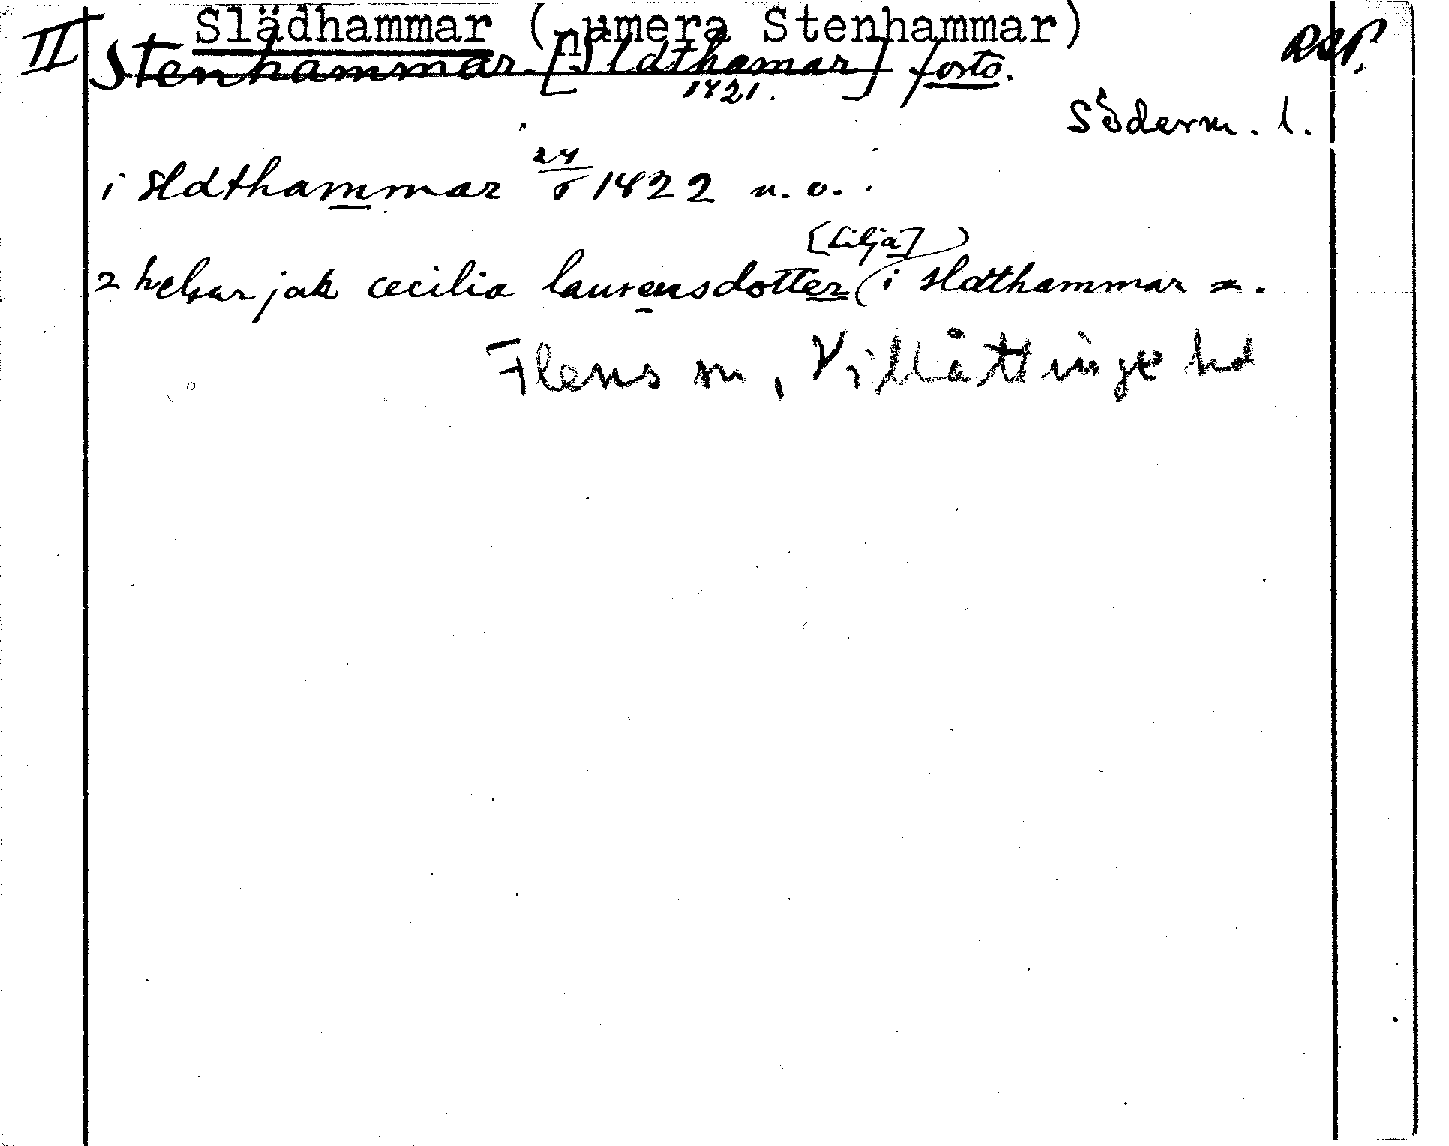 II Slädhammar (numera Stenhammar) RAP.
Stenhammar. [Sldthamar] forts.
1421.
Söderm. l.
i sldthammar 24/6 1422 n. o.
[Lilja]
2 helsar jak cecilia laurensdotter (i sldthammar
Flens sn, Villåttinge hd